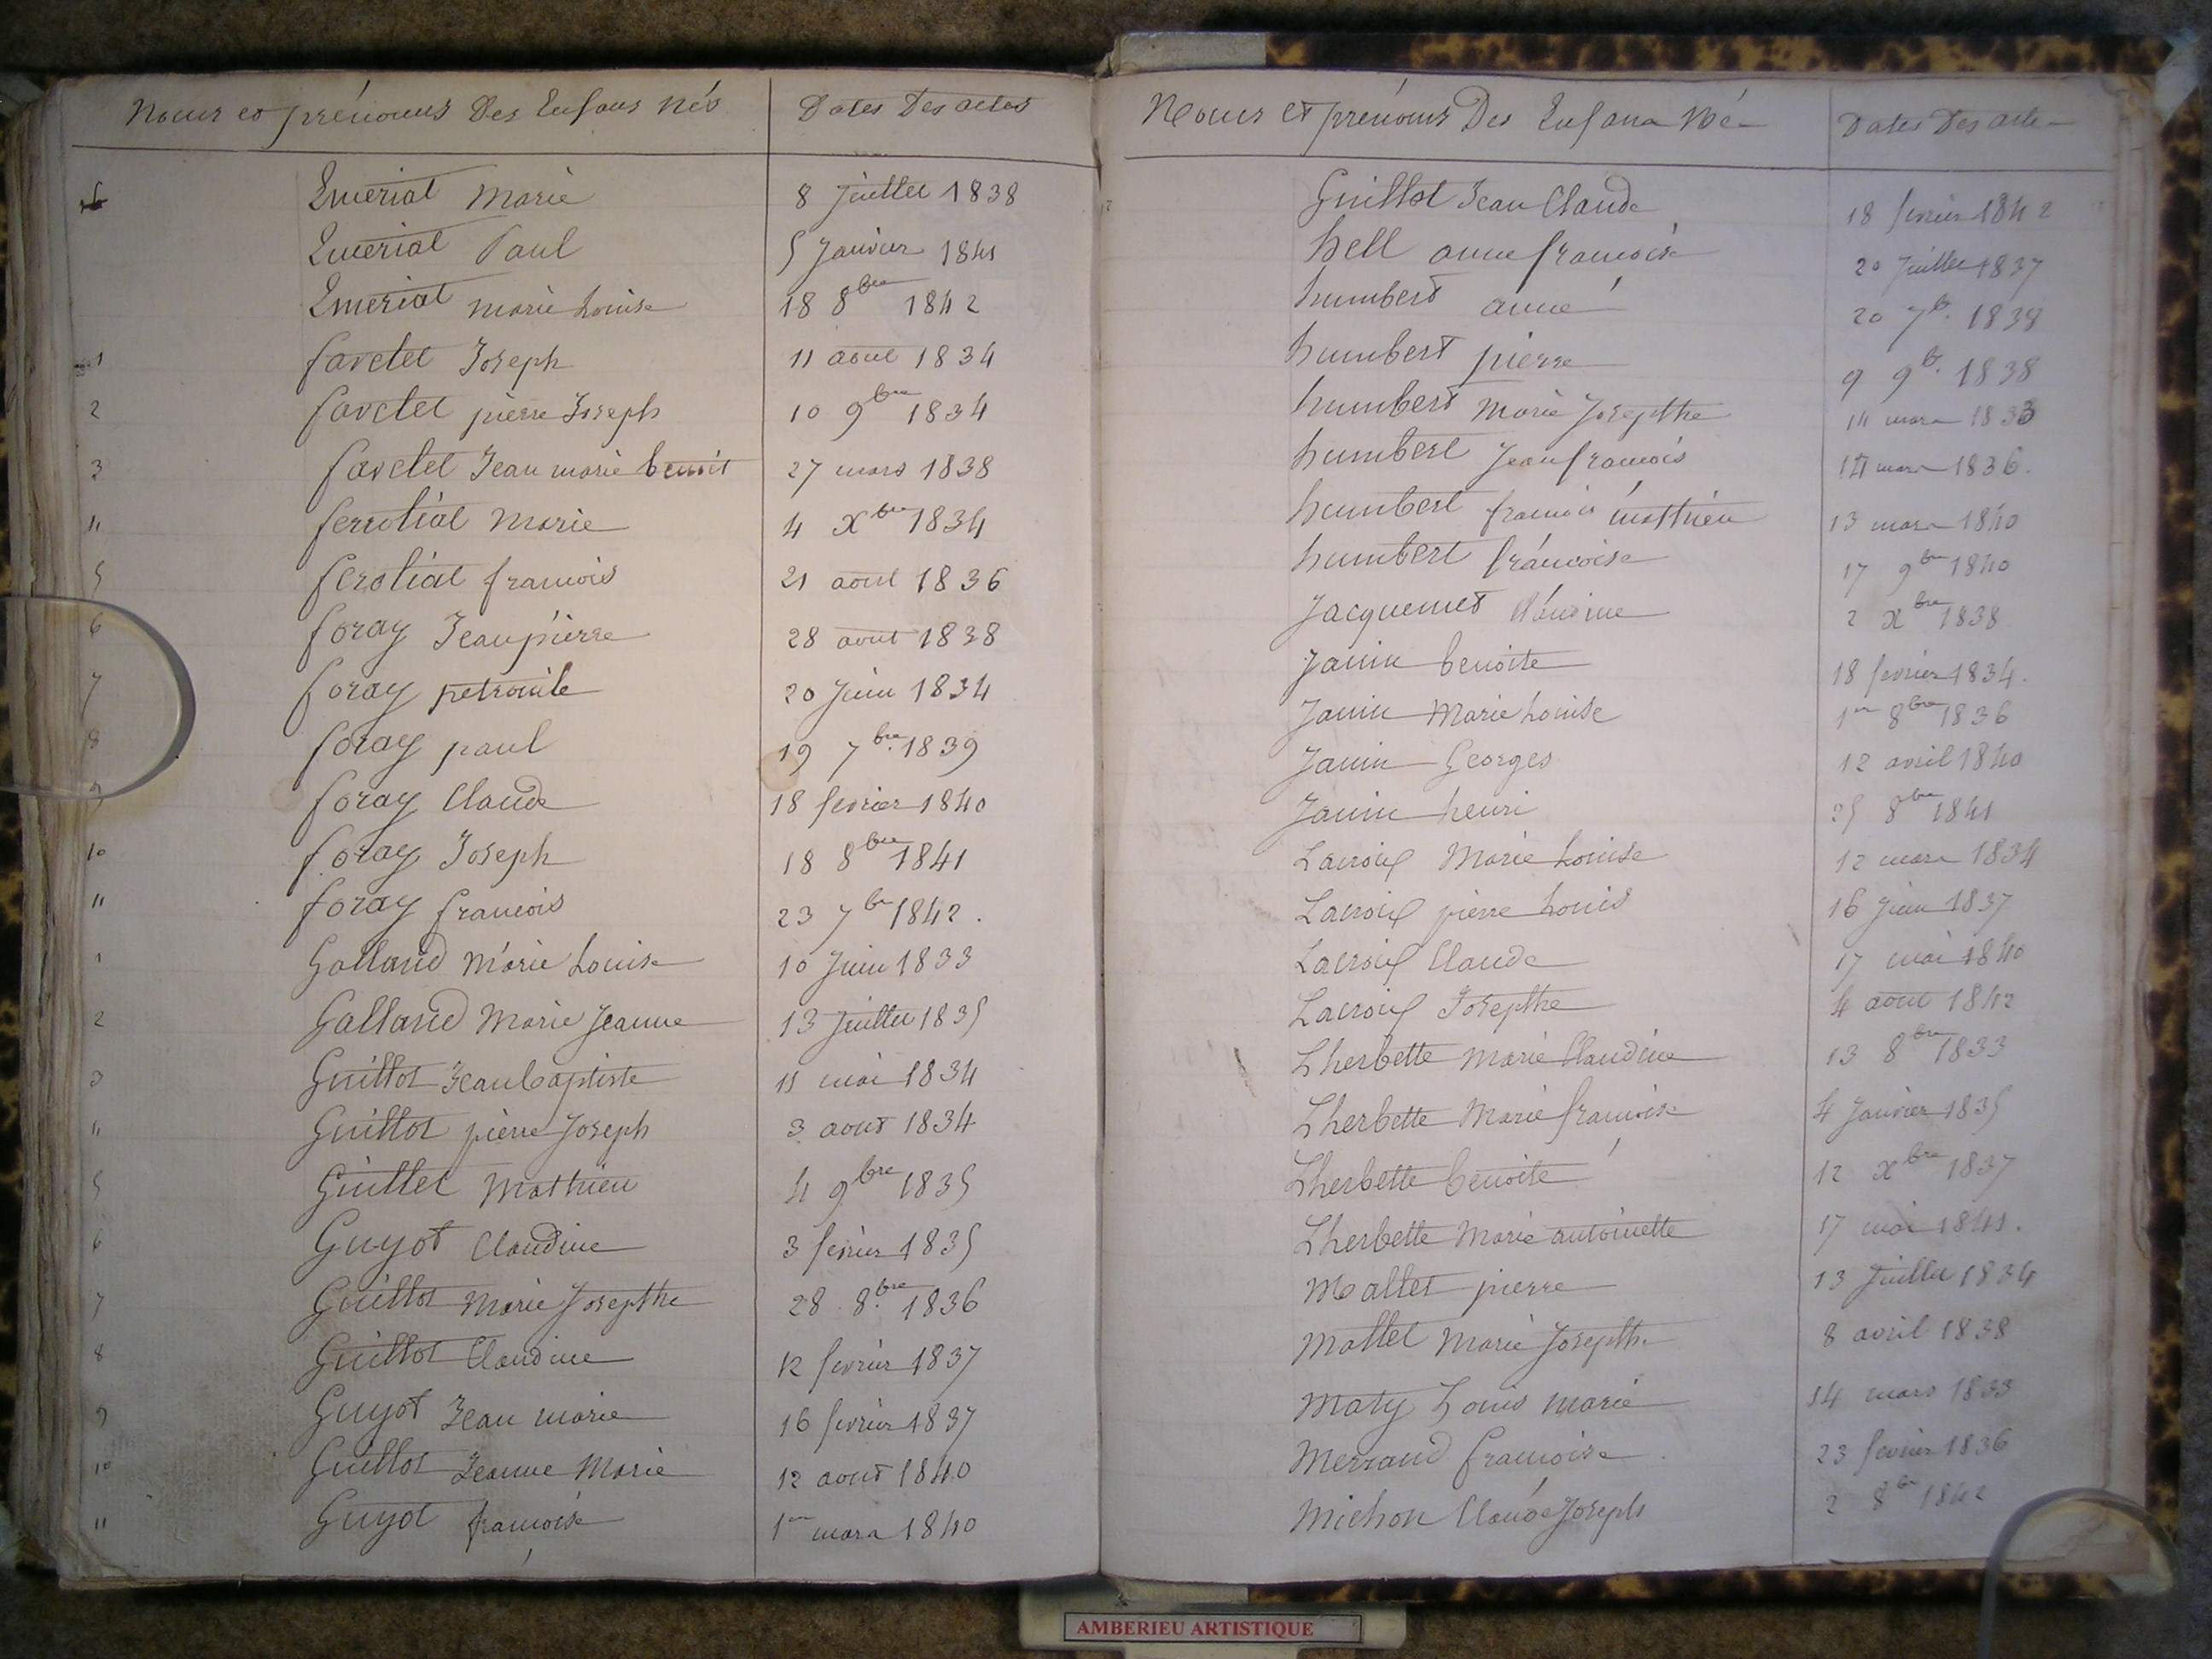 Noms et prénoms Des Enfans nés Dates Des actes
Emeriat Marie 8 Juillet 1838
Emeriat Paul 5 Janvier 1841
Emeriat marie Louise 18 8bre 1842
1 favelet Joseph 11 aout 1834
2 favelet pierre Joseph 10 9bre 1834
3 favelet Jean marie benoit 27 mars 1838
4 ferrotiat Marie 4 Xbre 1834
5 ferotiat francois 21 aout 1836
6 foray Jean pierre 28 aout 1838
7 foray petronile 20 Juin 1834
8 foray paul 19 7bre 1839
9 foray Claude 18 fevrier 1840
10 foray Joseph 18 8bre 1841
11 foray francois 23 7bre 1842.
1 Galland Marie Louise 10 Juin 1833
2 Galland Marie Jeanne 13 Juillet 1835
3 Guillot Jean baptiste 11 mai 1834
4 Guillot pierre Joseph 3 aout 1834
5 Guillet Mathieu 4 9bre 1835
6 Guyot Claudine 3 fevrier 1835
7 Guillot Marie Josepthe 28 8bre 1836
8 Guillot Claudine 12 fevrier 1837
9 Guyot Jean marie 16 fevrier 1837
10 Guillot Jeanne Marie 12 aout 1840
11 Guyot francoise 1er mars 1840
Noms et prénoms Des Enfans Né Dates Des actes
Guillot Jean Claude 18 fevrier 1842
hell anne francoise 20 Juillet 1837
humbert anne 20 7b. 1838
humbert pierre 9 9b. 1838
humbert Marie Josepthe mars 1833
humbert Jean francois mars 1836.
humbert francois mathieu 13 mars 1840
humbert francoise 17 9bre 1840
Jacquemet 2 Xbre 1838
Janin benoite 18 fevrier 1834.
Janin Marie Louise 1er 8bre 1836
Janin Georges 12 avril 1840
Janin henri 25 8bre 1841
Lacroix Marie Louise 12 mars 1834
Lacroix pierre Louis 16 Juin 1837
Lacroix Claude 17 mai 1840
Lacroix Josepthe 4 aout 1842
Lherbette Marie Claudine 13 8bre 1833
Lherbette Marie francoise 4 Janvier 1835
Lherbette benoite 12 Xbre 1837
Lherbette Marie antoinette 17 mai 1841.
Mallet pierre 13 Juillet 1834
Mallet Marie Josepthe 8 avril 1838
Maty Louis Marie 14 mars 1833
Merraud francoise 23 fevrier 1836
Michon Claude Joseph 2 8bre 1842
AMBERIEU ARTISTIQUE